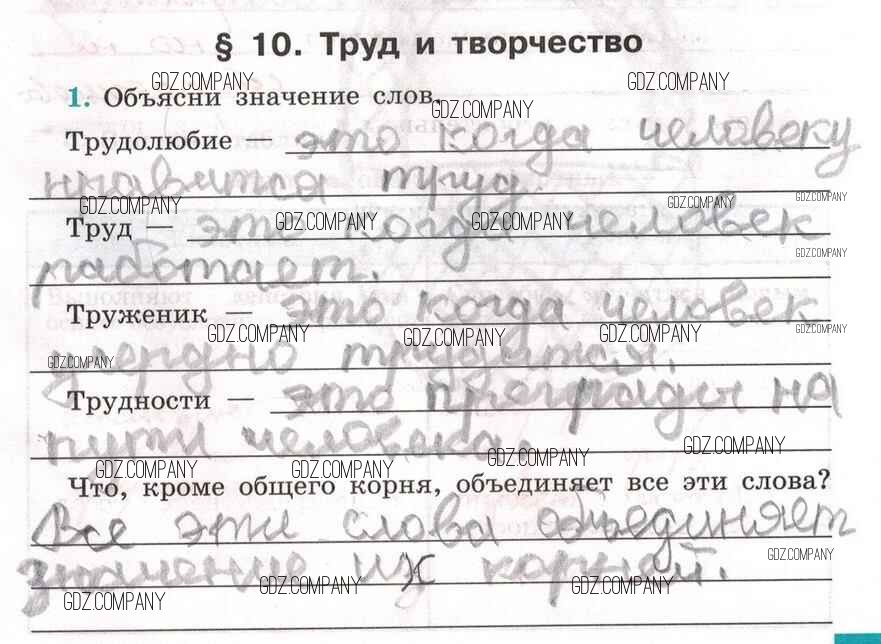 § 10. Труд и творчество
GDZ.COMPANY GDZ.COMPANY
1. Объясни значение слов.
GDZ.COMPANY
Трудолюбие — это когда человеку
нравится труд.
GDZ.COMPANY GDZ.COMPANY GDZ.COMPANY
Труд — это когда человек
GDZ.COMPANY GDZ.COMPANY
работает.
GDZ.COMPANY
Труженик — это когда человек
GDZ.COMPANY GDZ.COMPANY GDZ.COMPANY GDZ.COMPANY
усердно трудится.
GDZ.COMPANY
Трудности — это преграды на
пути человека.
GDZ.COMPANY GDZ.COMPANY GDZ.COMPANY GDZ.COMPANY
Что, кроме общего корня, объединяет все эти слова?
Все эти слова объединяет
значение их корней.
GDZ.COMPANY
GDZ.COMPANY GDZ.COMPANY GDZ.COMPANY